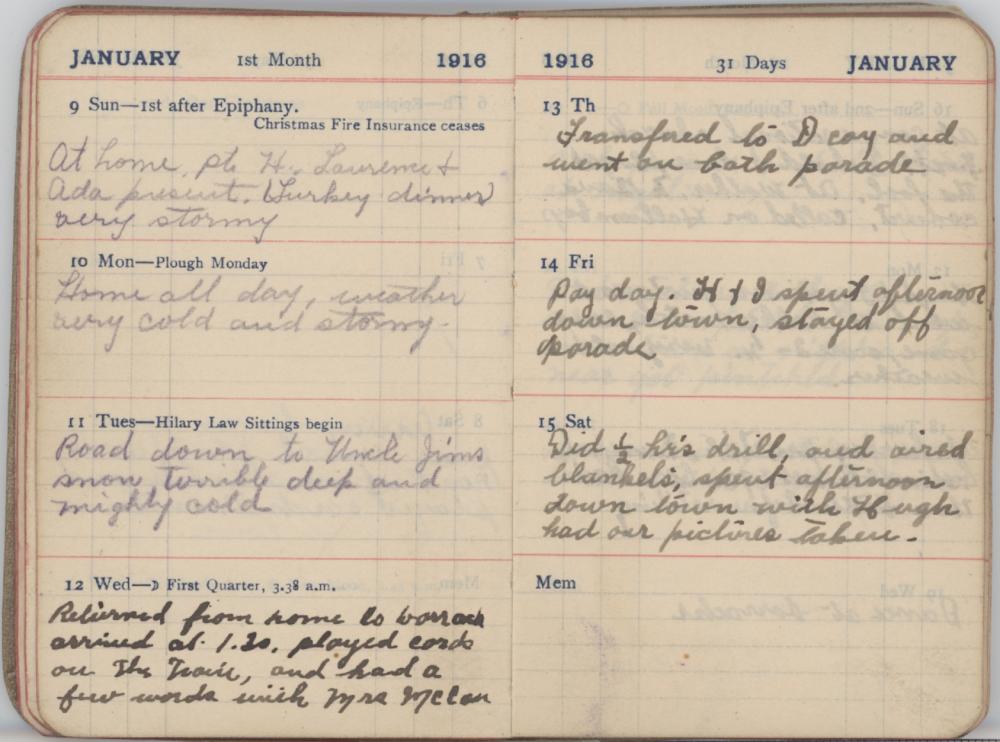 JANUARY 1st Month 1916
9 Sun—1st after Epiphany.
Christmas Fire Insurance ceases
At home, pts H., Laurence &
Ada present. Turkey dinner
very stormy
10 Mon—Plough Monday
Home all day, weather
very cold and stormy.
11 Tues—Hilary Law Sittings begin
Road down to Uncle Jims
snow, terrible deep and
mighty cold
12 Wed—☽ First Quarter, 3.38 a.m.
Returned from home to barrack
arrived at 1.30. played cards
on the Train, and had a
few words with Mrs McLean
1916 31 Days JANUARY
13 Th
Transfered to D coy and
went on bath parade
14 Fri
Pay day. H & I spent afternoon
down town, stayed off
parade
15 Sat
Did ½ hr's drill, and aired
blankets, spent afternoon
down town with Hugh
had our pictures taken.
Mem